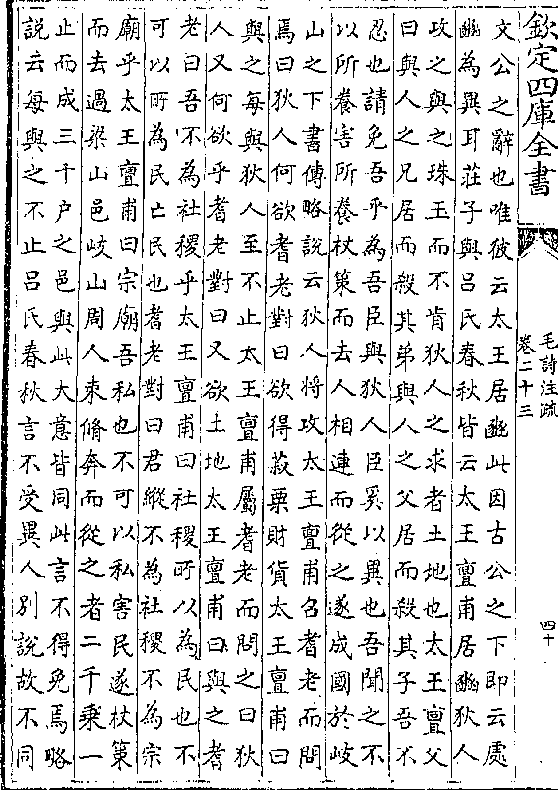 欽定四庫全書
毛詩注疏
卷二十三
四十
文公之辭也唯彼云太王居豳此因古公之下即云處
豳為異耳莊子與呂氏春秋皆云太王亶甫居豳狄人
攻之與之珠玉而不肯狄人之求者土地也太王亶父
曰與人之兄居而殺其弟與人之父居而殺其子吾不
忍也請免吾乎為吾臣與狄人臣奚以異也吾聞之不
以所養害所養杖策而去人相連而從之遂成國於岐
山之下書傳略說云狄人將攻太王亶甫召耆老而問
焉曰狄人何欲耆老對曰欲得菽粟財貨太王亶甫曰
與之每與狄人至不止太王亶甫屬耆老而問之曰狄
人又何欲乎耆老對曰又欲土地太王亶甫曰與之耆
老曰吾不為社稷乎太王亶甫曰社稷所以為民也不
可以所為民亡民也耆老對曰君縱不為社稷不為宗
廟乎太王亶甫曰宗廟吾私也不可以私害民遂杖策
而去過梁山邑岐山周人束脩奔而從之者二千乘一
止而成三千户之邑與此大意皆同此言不得免焉略
說云每與之不止呂氏春秋言不受異人别說故不同